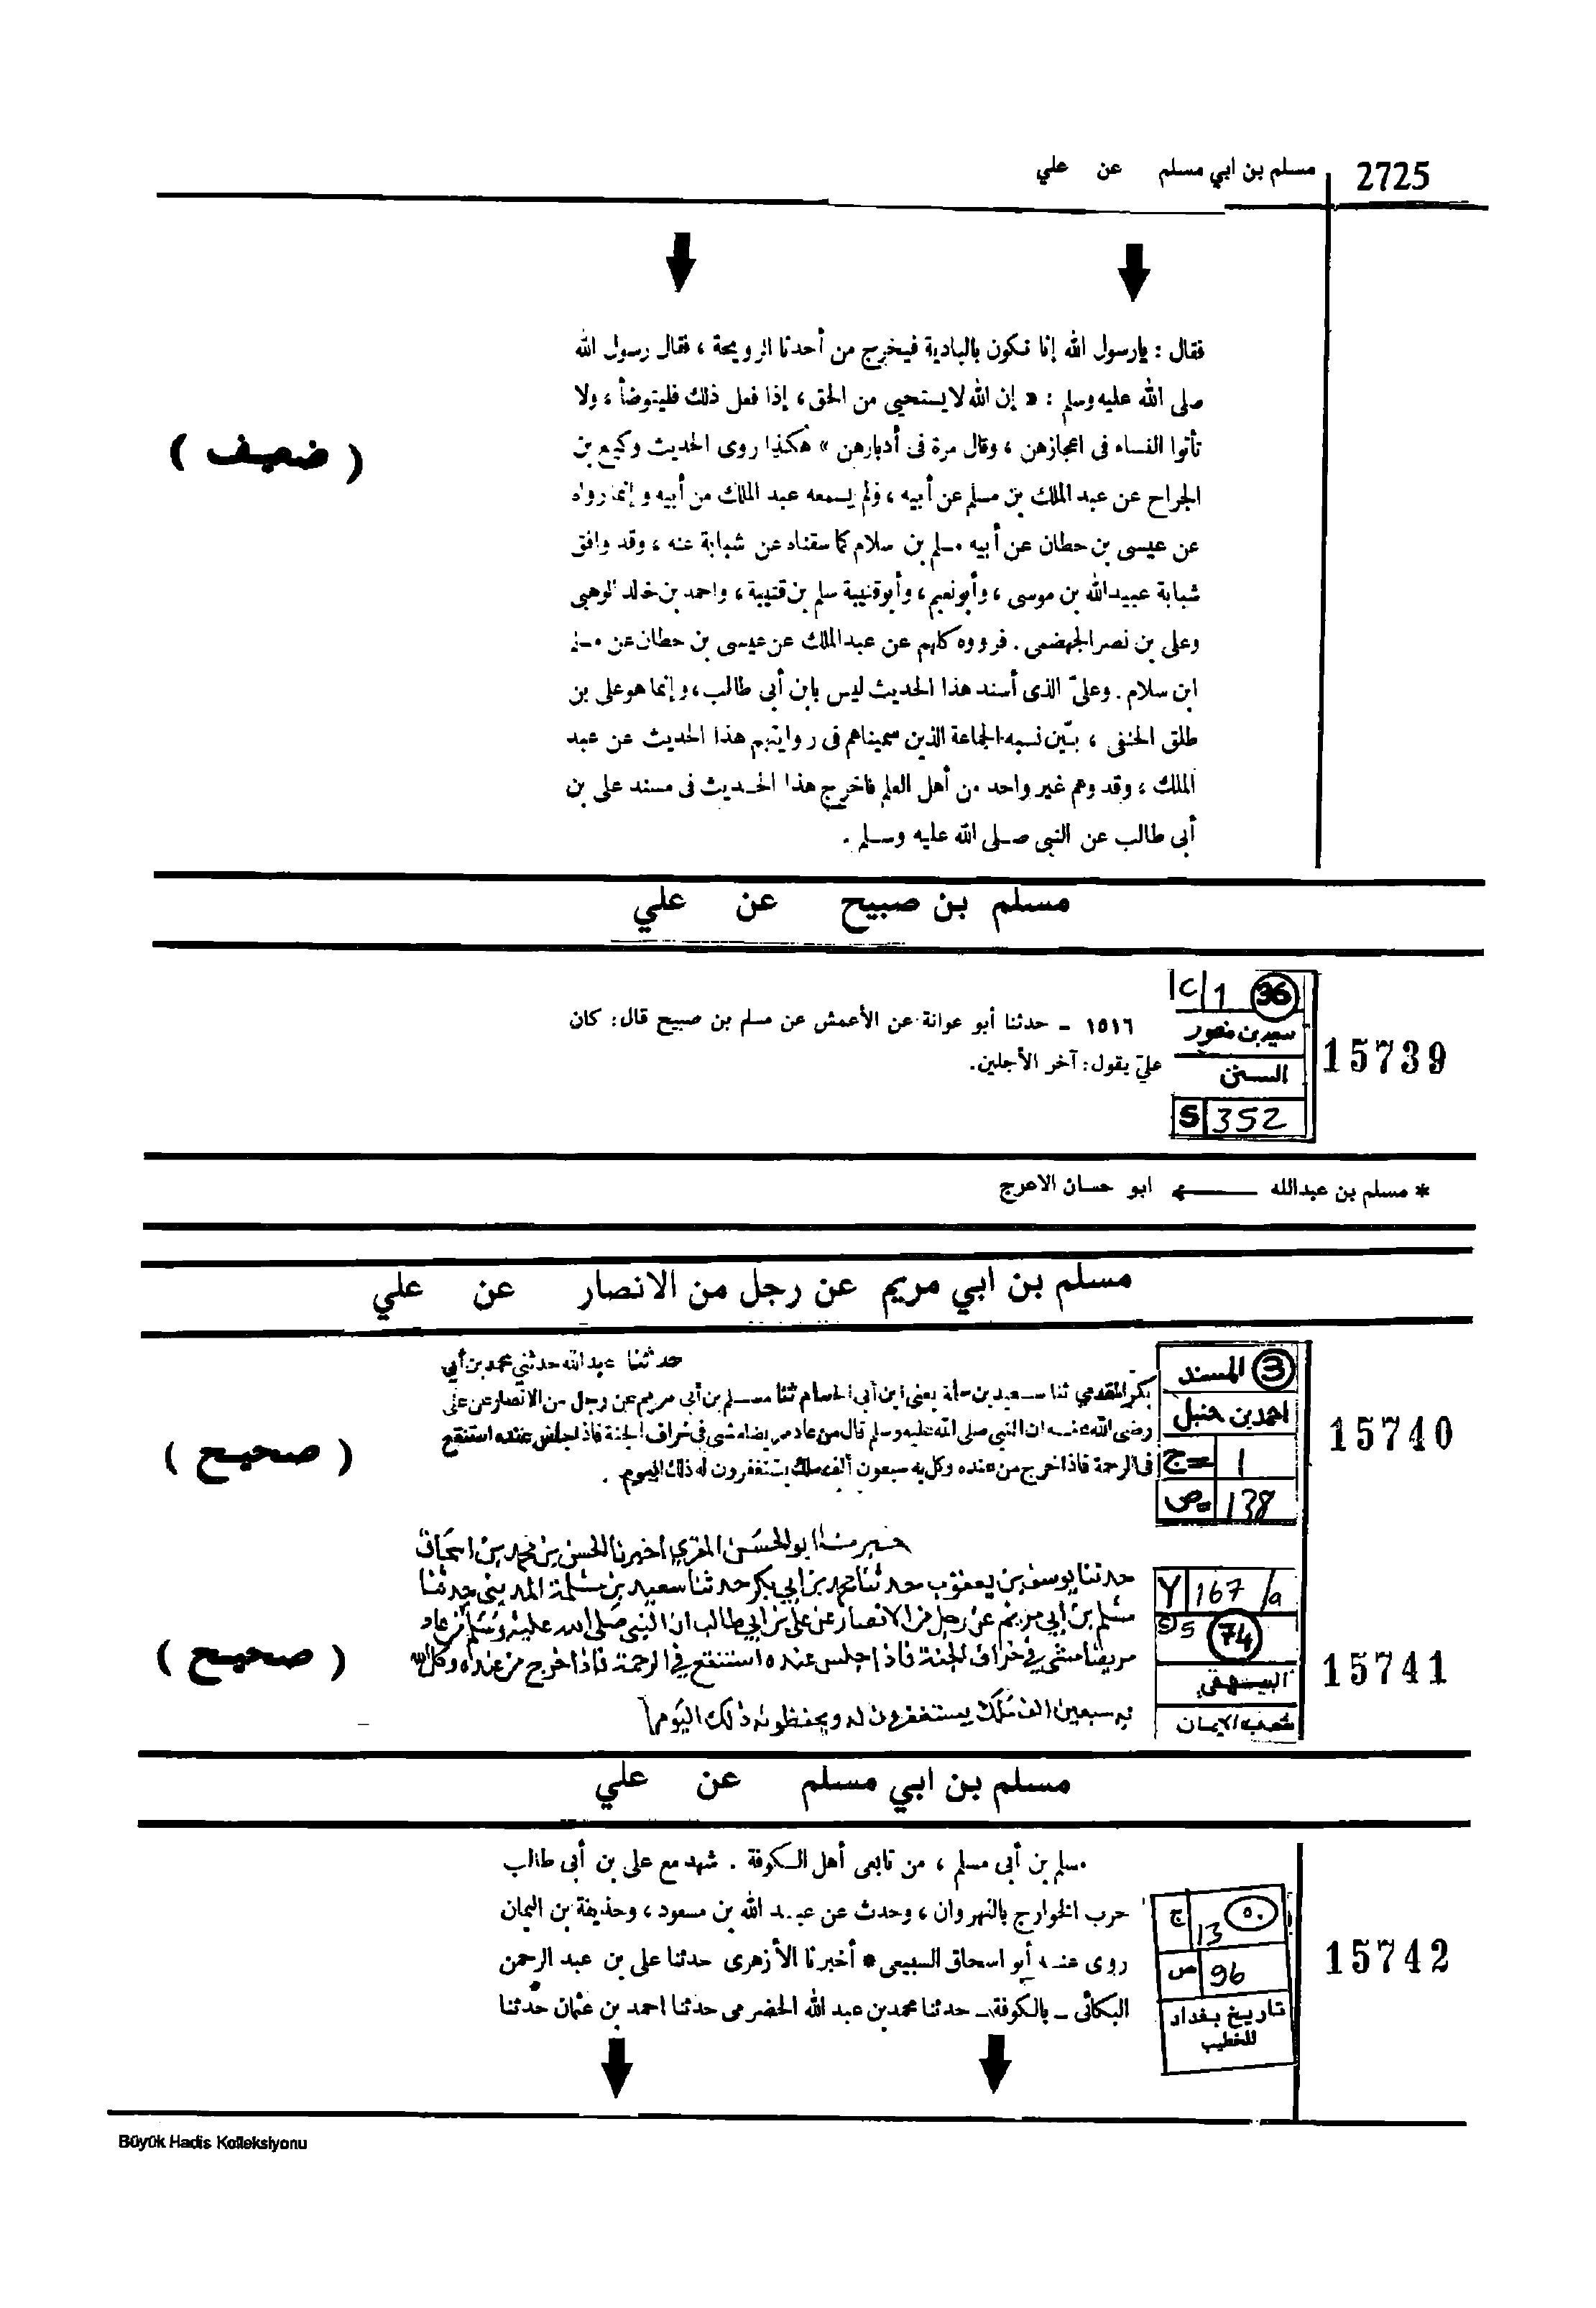 2725 مسلم بن ابي مسلم عن علي
فقال : يارسول الله إنا نكون بالبادية فيخرج من أحدنا الرويحة ، فقال رسول الله
صلى الله عليه وسلم : « إن الله لا يستحيي من الحق ، إذا فعل ذلك فليتوضأ ، ولا
تأتوا النساء فى اعجازهن ، وقال مرة فى أدبارهن » هكذا روى الحديث وكيع بن
الجراح عن عبد الملك بن مسلم عن أبيه ، ولم يسمعه عبد الملك من أبيه وإنما رواه
عن عيسى بن حطان عن أبيه مسلم بن سلام كما سقناه عن شبابة عنه ، وقد وافق
شبابة عبيد الله بن موسى ، وأبو نعيم ، وأبو قتيبة سلم بن قتيبة ، واحمد بن خالد الوهبى
وعلى بن نصر الجهضمى . فرووه كلهم عن عبد الملك عن عيسى بن حطان عن مسلم
ابن سلام . وعلىّ الذى أسند هذا الحديث ليس بابن أبى طالب ، وإنما هو على بن
طلق الحنفى ، بيّن نسبه الجماعة الذين سميناهم فى روايتهم هذا الحديث عن عبد
الملك ، وقد وهم غير واحد من أهل العلم فاخرج هذا الحديث فى مسند على بن
أبى طالب عن النبى صلى الله عليه وسلم .
( ضعيف )
مسلم بن صبيح عن علي
15739
1 36
سعيد بن منصور
السنن
S 352
١٥١٦ - حدثنا أبو عوانة عن الأعمش عن مسلم بن صبيح قال : كان
عليّ يقول : آخر الأجلين .
* مسلم بن عبدالله ← ابو حسان الاعرج
مسلم بن ابي مريم عن رجل من الانصار عن علي
15740
3 المسند
احمد بن حنبل
ج= 1
ص= 138
حدثنا عبد الله حدثني محمد بن أبي
بكر المقدمي ثنا سعيد بن سلمة يعنى ابن أبى الحسام ثنا مسلم بن أبى مريم عن رجل من الانصار عن على
رضى الله عنه ان النبى صلى الله عليه وسلم قال من عاد مريضا مشى فى خراف الجنة فاذا جلس عنده استنقع
فى الرحمة فاذا خرج من عنده وكل به سبعون ألف ملك يستغفرون له ذلك اليوم .
( صحيح )
15741
Y 167/a
S 5 74
البيهقي
شعب الايمان
اخبرنا ابو الحسن المقري اخبرنا الحسن بن محمد بن اسحاق
حدثنا يوسف بن يعقوب حدثنا محمد بن ابي بكر حدثنا سعيد بن سلمة المديني حدثنا
مسلم بن ابي مريم عن رجل من الانصار عن علي بن ابي طالب ان النبي صلى الله عليه وسلم قال من عاد
مريضا مشى في خراف الجنة فاذا جلس عنده استنقع في الرحمة فاذا خرج من عنده وكل الله
به سبعين الف ملك يستغفرون له ويحفظونه ذلك اليوم
( صحيح )
مسلم بن ابي مسلم عن علي
15742
ج 13 ٥٠
ص 96
تاريخ بغداد
للخطيب
مسلم بن أبى مسلم ، من تابعى أهل الكوفة . شهد مع على بن أبى طالب
حرب الخوارج بالنهروان ، وحدث عن عبد الله بن مسعود ، وحذيفة بن اليمان
روى عنه أبو اسحاق السبيعى * أخبرنا الأزهرى حدثنا على بن عبد الرحمن
البكائى - بالكوفة - حدثنا محمد بن عبد الله الحضرمى حدثنا احمد بن عثمان حدثنا
Büyük Hadis Kolleksiyonu